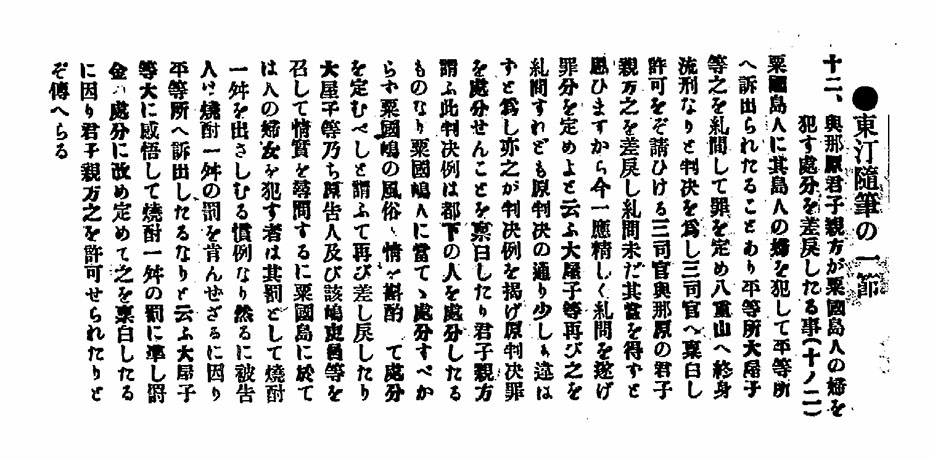 ●東汀隨筆の一節
十二、與那原君子親方が粟國島人の婦を
犯す處分を差戻したる事(十ノ二)
粟國島人に其島人の婦を犯して平等所
へ訴出られたることあり平等所大屋子
等之を糺問して罪を定め八重山へ終身
流刑なりと判决を爲し三司官へ稟白し
許可をぞ請ひける三司官與那原の君子
親方之を差戻し糺問未だ其當を得すと
思ひますから今一應精しく糺問を遂げ
罪分を定めよと云ふ大屋子等再び之を
糺問すれども原判决の通り少しも違は
ずと爲し亦之が判决例を揭げ原判决罪
を處分せんことを稟白したり君子親方
謂ふ此判决例は都下の人を處分したる
ものなり粟國嶋人に當てゝ處分すべか
らず粟國嶋の風俗人情を斟酌して處分
を定むべしと謂ふて再び差し戻したり
大屋子等乃ち原告人及び該嶋吏員等を
召して情實を尋問するに粟國島に於て
は人の婦女を犯す者は其罰として燒酎
一舛を出さしむる慣例なり然るに被告
人は燒酎一舛の罰を肯んせざるに因り
平等所へ訴出したるなりと云ふ大屋子
等大に感悟して燒酎一舛の罰に準し罸
金の處分に改め定めて之を稟白したる
に因り君子親方之を許可せられたりと
ぞ傳へらる